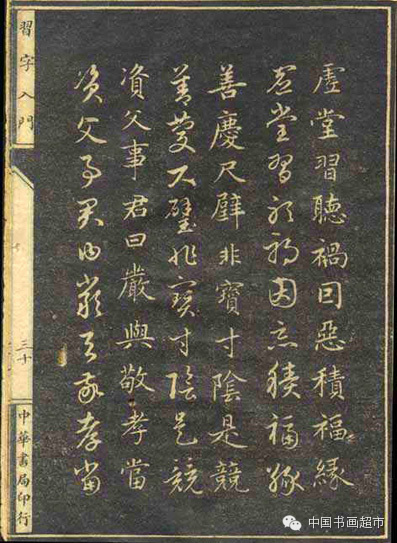 虛堂習聽禍因惡積福緣
虛堂習聽禍因惡積福緣
善慶尺璧非寶寸陰是競
善慶尺璧非寶寸陰是競
資父事君曰嚴與敬孝當
資父事君曰嚴與敬孝當
習字入門
三十
中華書局印行
中国书画超市